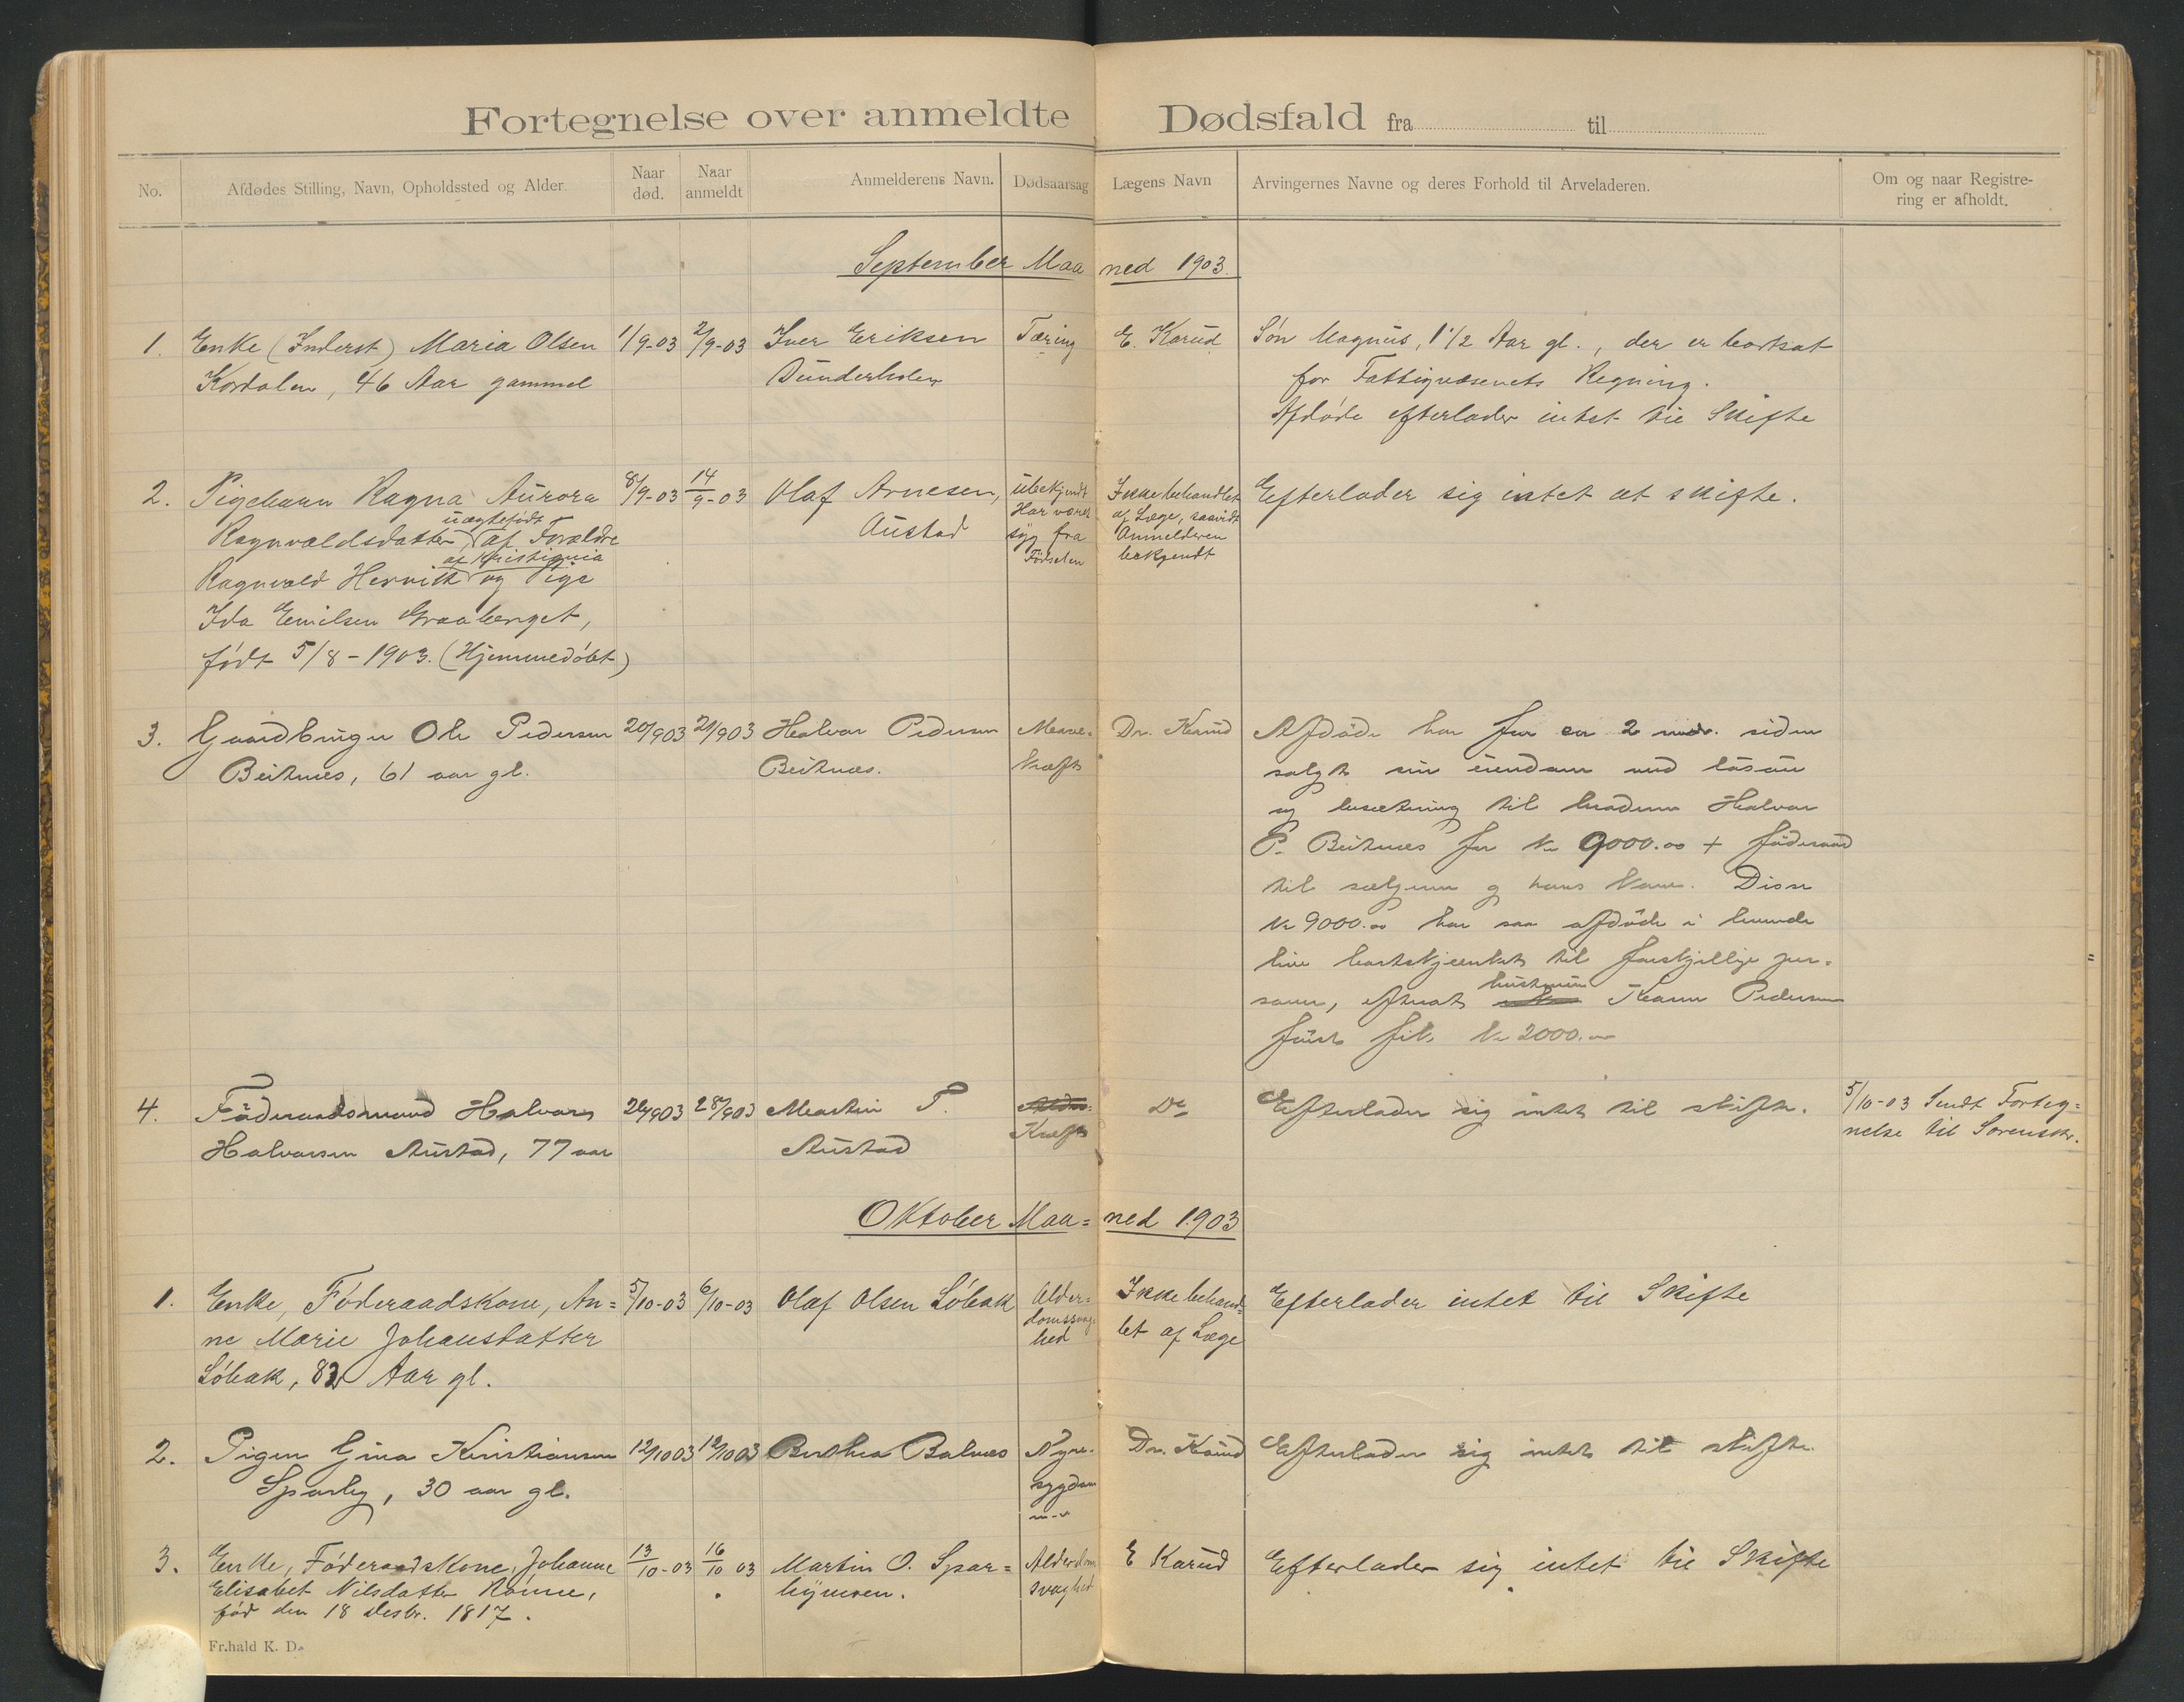 Fortegnelse over anmeldte Dødsfald fra til
No. Afdødes Stilling, Navn, Opholdssted og Alder. Naar død. Naar anmeldt Anmelderens Navn. Dødsaarsag Lægens Navn Arvingernes Navne og deres Forhold til Arveladeren. Om og naar Registrering er afholdt.
September Maaned 1903.
1. Enke (Inderst) Maria Olsen 1/9-03 2/9-03 Iver Eriksen Tæring E. Karud Søn Magnus, 1 1/2 Aar gl., der er bortsat
Kordalen, 46 Aar gammel for Fattigvæsenets Regning.
Afdøde efterlader intet til Skifte
2. Pigebarn Ragna Aurora 8/9-03 14/9-03 Olaf Arnesen, ubekjendt Ikke behandlet Efterlader sig intet at skifte.
uægtefødt Har været af Læge, saavidt
Ragnvaldsdatter, af Forældre Austad syg fra Anmelderen
af Kristiania Fødselen bekjendt
Ragnvald Hervik og Pige
Ida Emilsen Graaberget,
født 5/8-1903. (Hjemmedøbt)
3. Gaardbruger Ole Pedersen 20/903 21/903 Halvor Pedersen Mave= Dr. Karud Afdøde har for ca 2 mdr. siden
Beitnes, 61 aar gl. Beitnes. kræft solgt sin eiendom med løsøre
og besætning til broderen Halvor
P. Beitnes for Kr 9000.00 + føderaad
til sælgeren og hans kone. Disse
Kr 9000.00 har saa afdøde i levende
live bortskjænket til forskjellige per=
soner, efterat hustruen Karen Pedersen
først fik Kr 2000.00
4. Føderaadsmand Halvor 26/903 28/903 Martin P. Kræft Do Efterlader sig intet til skifte. 5/10-03 Sendt Forteg=
Halvorsen Austad, 77 aar Austad nelse til Sorenskr.
Oktober Maa=ned 1903
1. Enke, Føderaadskone, An= 5/10-03 6/10-03 Olaf Olsen Løbak Alder= Ikke behand= Efterlader intet til Skifte
ne Marie Johansdatter domssvag= let af Læge
Løbak, 82 Aar gl. hed
2. Pigen Gina Kristiansen 12/1003 12/1003 Berthea Balnes Nyre= Dr. Karud Efterlader sig intet til skifte.
Sparby, 30 aar gl. sygdom
m.v
3. Enke, Føderaadskone, Johanne 13/10-03 16/10 03 Martin O. Spar= Alderdoms E Karud Efterlader sig intet til Skifte
Elisabet Nilsdatter Ramse, bymoen. svaghed
fød den 18 Desbr. 1817.
Fr.hald K. D.